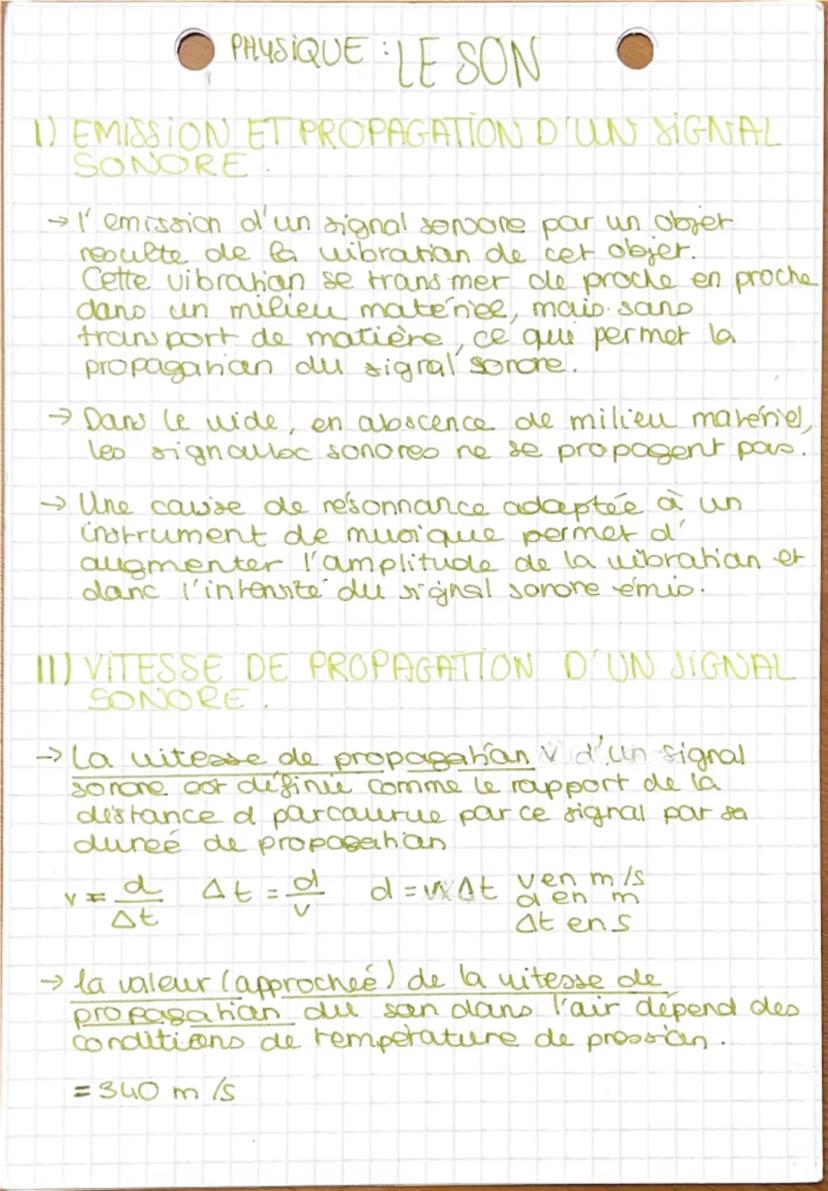 PHYSIQUE : LE SON
I) EMISSION ET PROPAGATION D'UN SIGNAL
SONORE.
→ l'emission d'un signal sonore par un objet
résulte de la vibration de cet objet.
Cette vibration se transmet de proche en proche
dans un milieu matériel, mais sans
transport de matière, ce qui permet la
propagation du signal sonore.
→ Dans le vide, en abscence de milieu matériel,
les signaux sonores ne se propagent pas.
→ Une caisse de résonnance adaptée à un
instrument de musique permet d'
augmenter l'amplitude de la vibration et
donc l'intensité du signal sonore émis.
II) VITESSE DE PROPAGATION D'UN SIGNAL
SONORE.
→ La vitesse de propagation v d'un signal
sonore est définie comme le rapport de la
distance d parcourue par ce signal par sa
durée de propagation
v = d/Δt Δt = d/v d = v×Δt v en m/s
d en m
Δt en s
→ la valeur (approcheé) de la vitesse de
propagation du son dans l'air dépend des
conditions de température de pression.
= 340 m/s